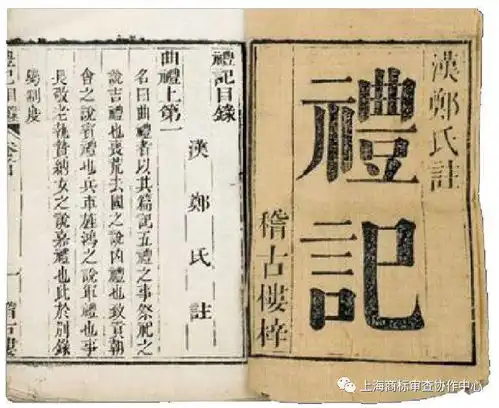 漢鄭氏註
禮記
稽古樓梓
禮記目錄
漢鄭氏註
曲禮上第一
名曰曲禮者以其篇記五禮之事祭祀之
說吉禮也喪荒去國之說凶禮也致貢朝
會之說賓禮也兵車旌鴻之說軍禮也事
長敬老執贄納女之說嘉禮也此於別錄
屬制度
禮記目錄
一
稽古樓
上海商标审查协作中心